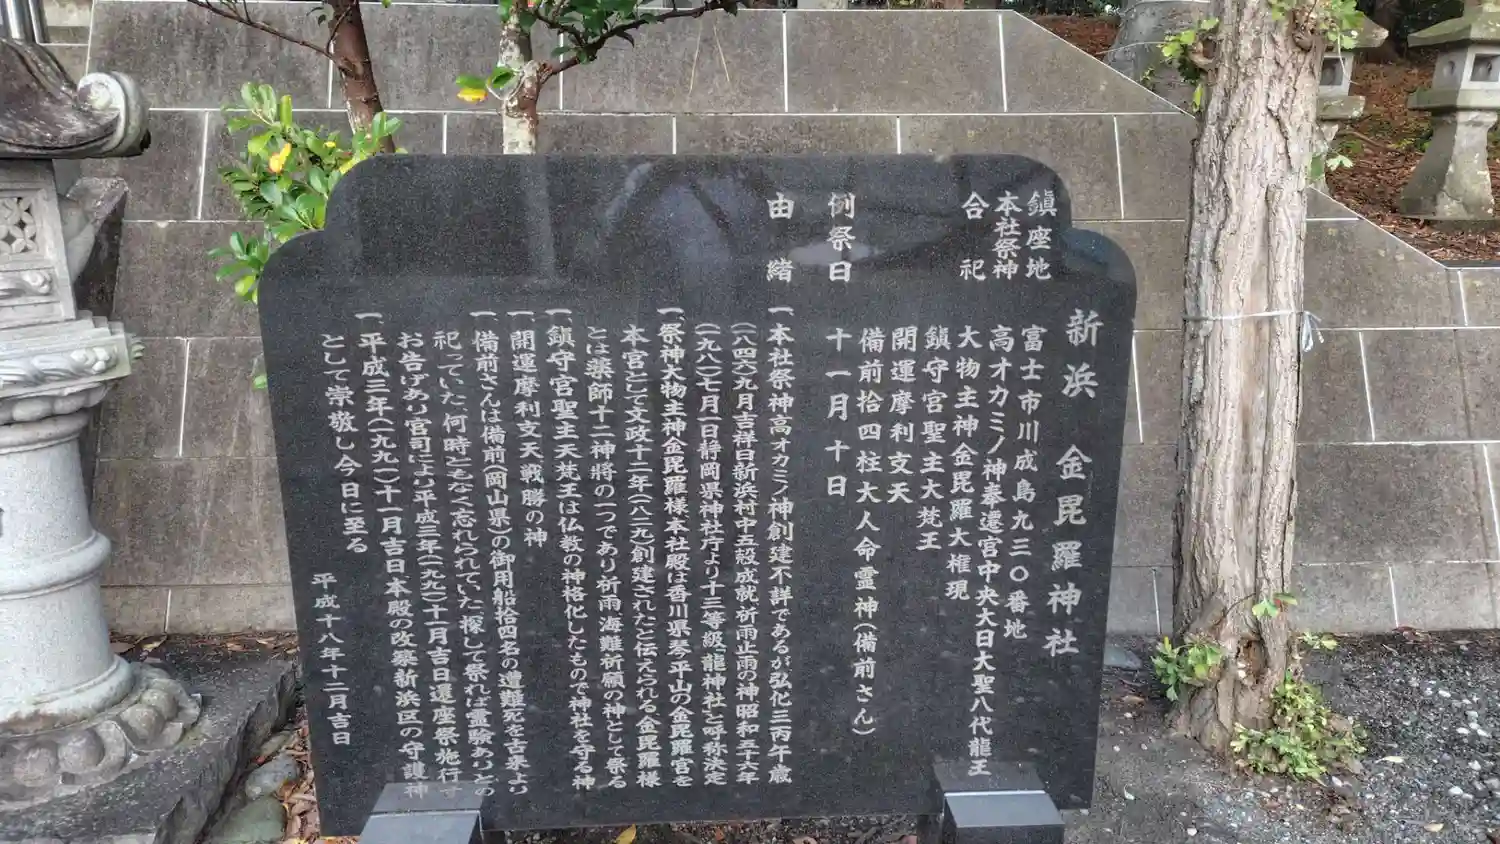 新浜 金毘羅神社
鎮座地 富士市川成島九三〇番地
本社祭神 高オカミノ神奉遷宮中央大日大聖八代龍王
合祀 大物主神金毘羅大権現
鎮守宮聖主大梵王
開運摩利支天
備前拾四柱大人命霊神(備前さん)
例祭日 十一月十日
由緒 一本社祭神高オカミノ神創建不詳であるが弘化三丙午歳
(一八四六)九月吉祥日新浜村中五穀成就祈雨止雨の神昭和五十六年
(一九八一)七月一日静岡県神社庁より十三等級、龍神社と呼称決定
一祭神大物主神金毘羅様本社殿は香川県琴平山の金毘羅宮を
本宮として文政十二年(一八二九)創建されたと伝えられる金毘羅様
とは薬師十二神将の一つであり祈雨海難祈願の神として祭る
一鎮守宮聖主天梵王は仏教の神格化したもので神社を守る神
一開運摩利支天戦勝の神
一備前さんは備前(岡山県)の御用船拾四名の遭難死を古来より
祀っていた、何時ともなく忘れられていた探して祭れば霊験ありとの
お告げあり宮司により平成三年(一九九一)十一月吉日還座祭施行す
一平成三年(一九九一)十一月吉日本殿の改築新浜区の守護神
として崇敬し今日に至る
平成十八年十二月吉日